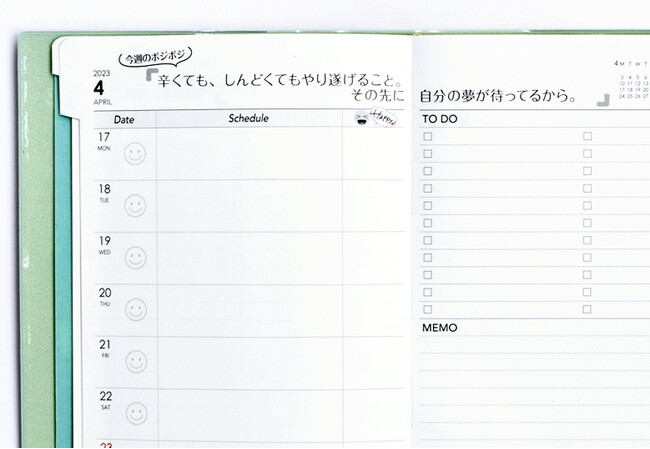 今週のポジポジ
2023
4
APRIL
『辛くても、しんどくてもやり遂げること。
その先に
自分の夢が待ってるから。』
4 M T W T
3 4 5 6
10 11 12 13
17 18 19 20
24 25 26 27
Date Schedule Happy
17
MON
18
TUE
19
WED
20
THU
21
FRI
22
SAT
23
TO DO
MEMO